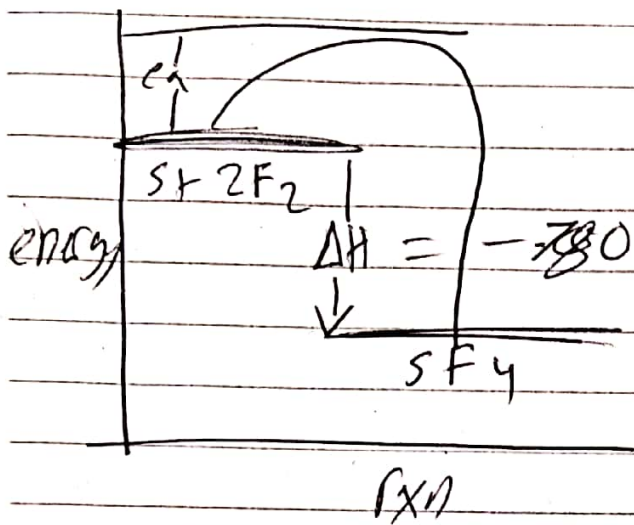 ea
S+ 2F2
energy
ΔH = -780
SF4
rxn